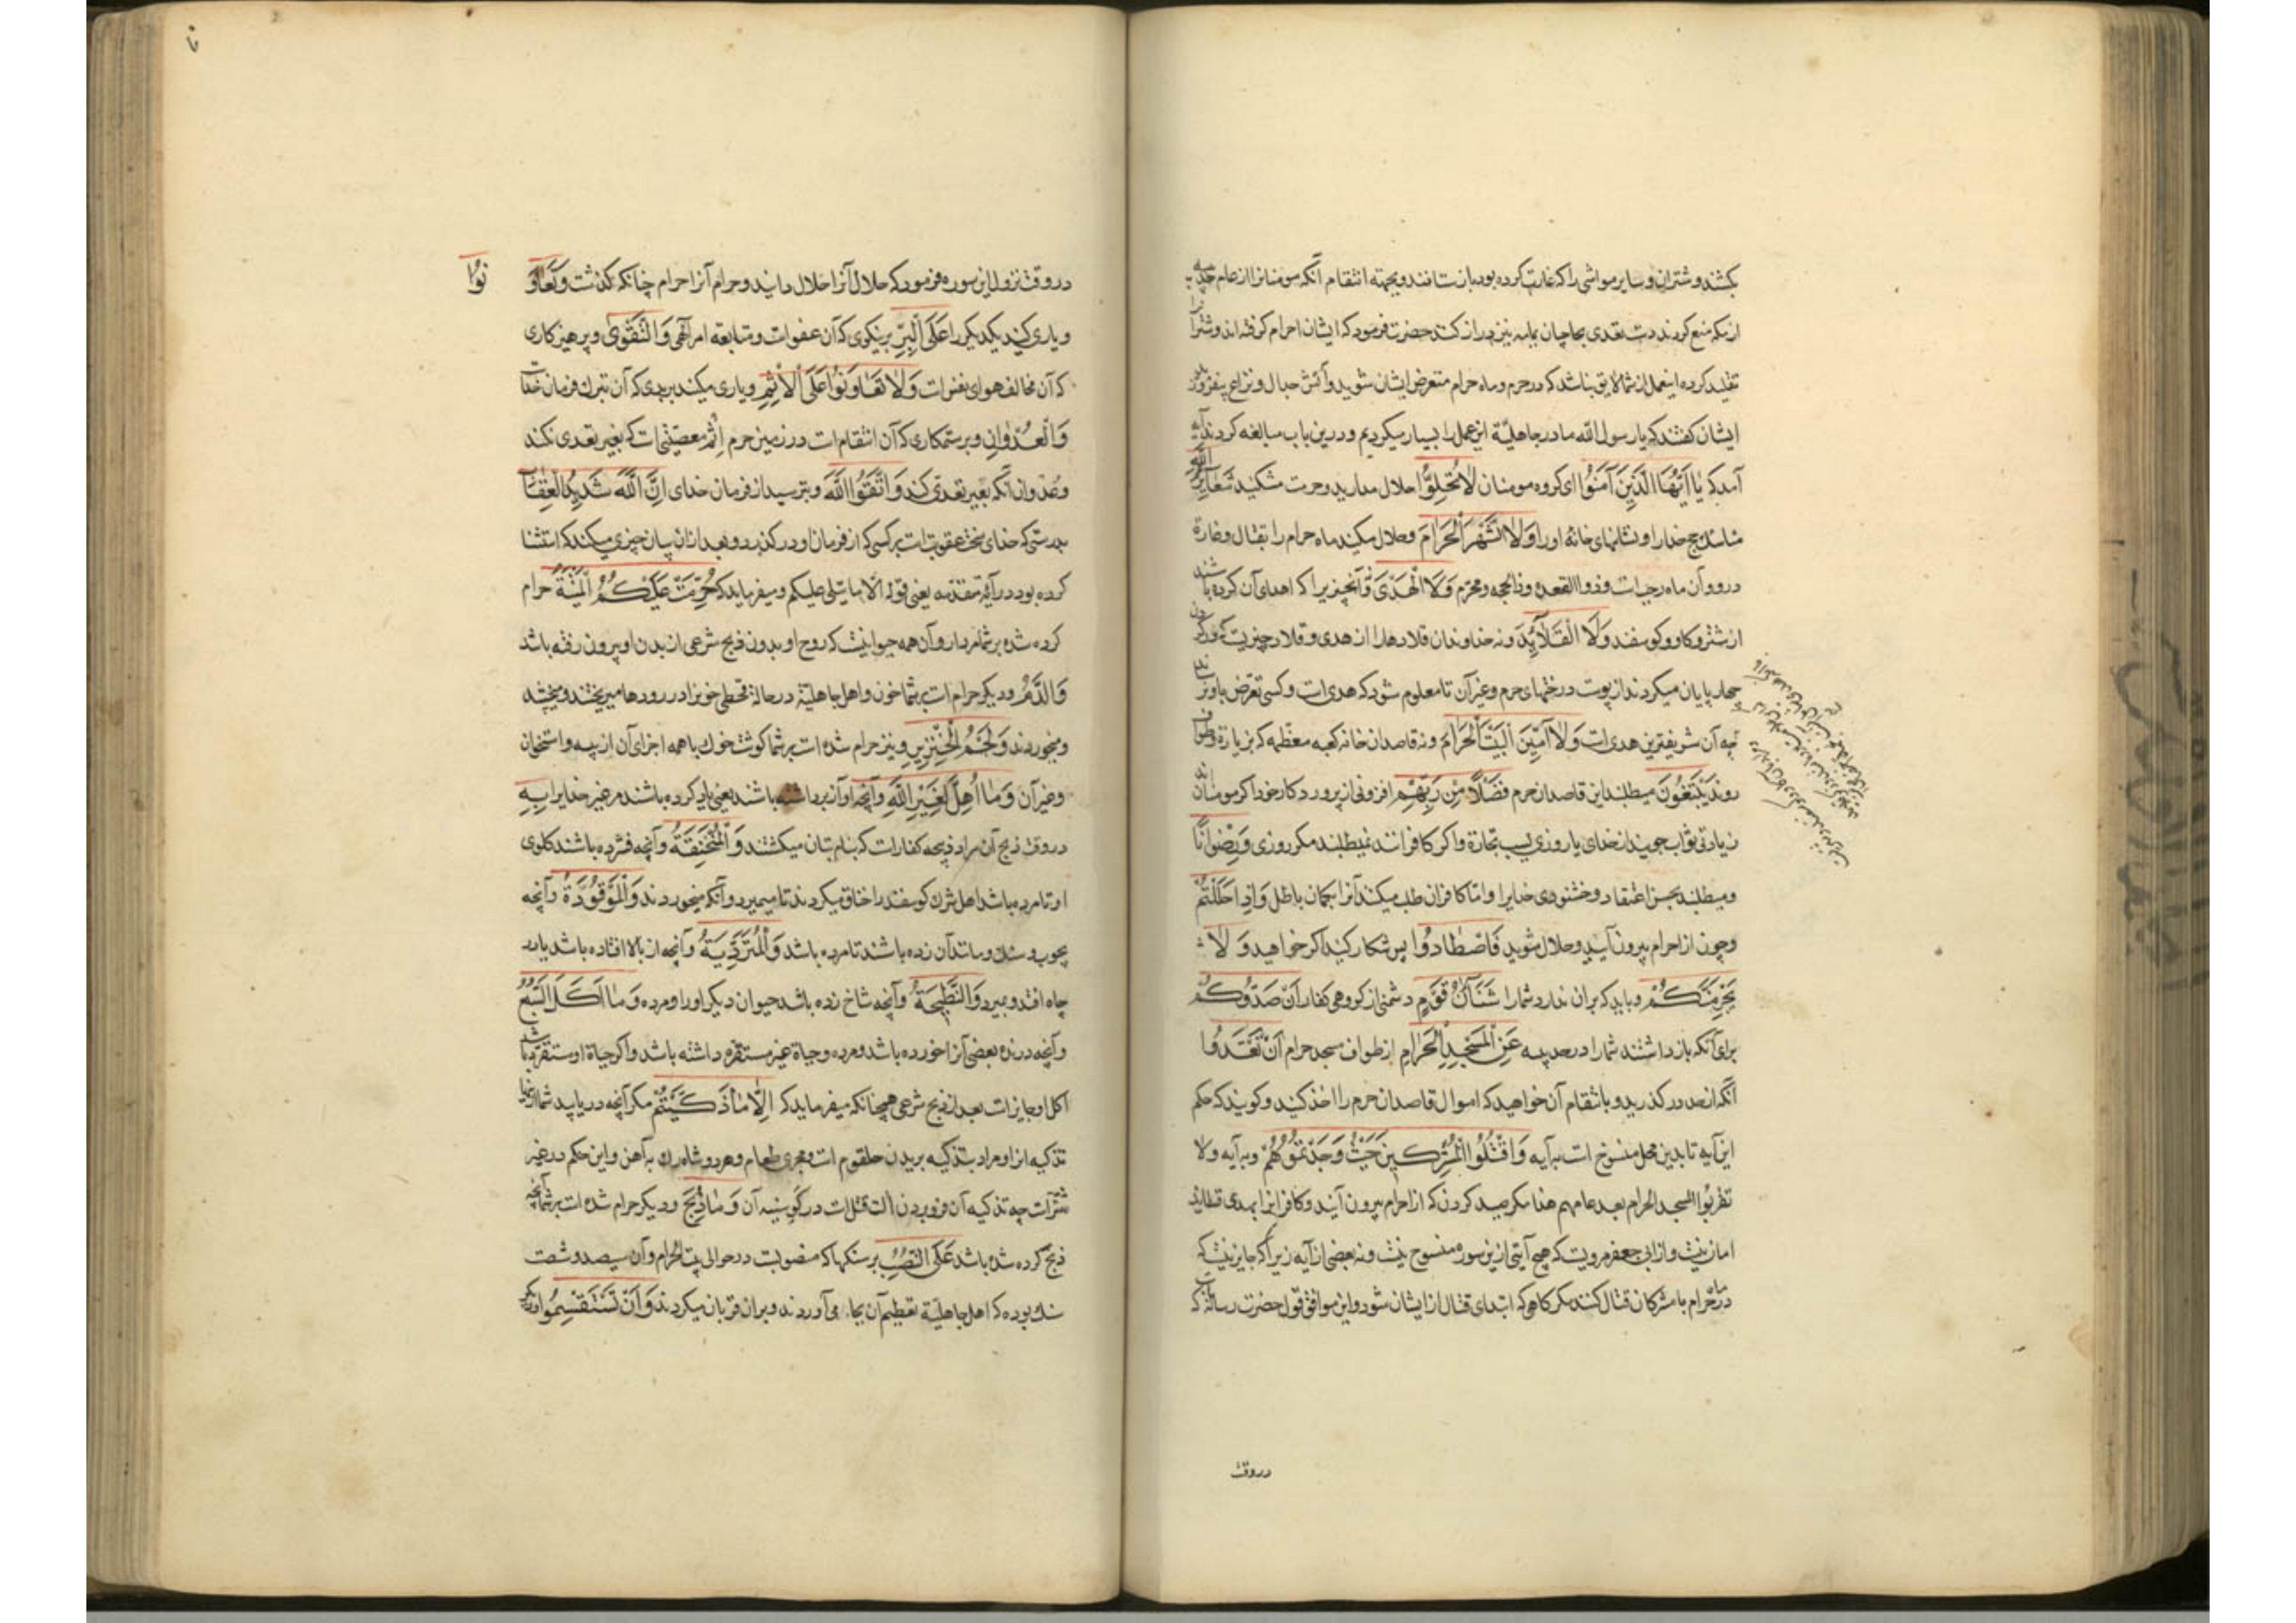 بکشند و شتران و سایر مواشی را که غارت کرده بود باز ستانند و بجهته انتقام آنکه مومنانرا از عام حدیبیه
از مکه منع کردند دست تعدی بحاجیان یمامه نیز دراز کنند حضرت فرمود که ایشان احرام گرفته اند و شتران را
تقلید کرده اینعمل از شما لایق نباشد که در حرم و ماه حرام متعرض ایشان شوید و آتش جدال و نزاع بیفروزید
ایشان گفتند که یا رسول الله ما در جاهلیة این عمل را بسیار میکردیم و درین باب مبالغه کردند آیه
آمد که یا اَیُّهَا الَّذینَ آمَنُوا ای گروه مومنان لا تُحِلُّوا حلال مدارید و حرمت مشکنید شَعٰایِرَ اللهِ
مناسک حج خدا را و نشانهای خانهٔ او را وَلَا الشَّهْرَ الْحَرٰامَ و حلال مکنید ماه حرام را بقتال و غارة
در و و آن ماه رجب است و ذوالقعده و ذالحجه و محرم وَلَا الْهَدْیَ و آنچیزیرا که اهدای آن کرده باشند
از شتر و گاو و گوسفند وَلَا الْقَلٰآئِدَ و نه خداوندان قلادها را از هدی و قلاد چیزیست که در گردن
چهارپایان میکردند از پوست درختهای حرم و غیر آن تا معلوم شود که هدی است و کسی تعرض باو نرساند
چه آن شریفترین هدی است وَلٰا آمّینَ الْبَیْتَ الْحَرٰامَ و نه قاصدان خانه کعبه معظمه که بزیارة و طواف
روند یَبْتَغُونَ میطلبند این قاصدان حرم فَضْلًا مِنْ رَبِّهِمْ افزونی از پروردگار خود اگر مومنان اند
زیادتی ثواب جویند از خدای یا روزی بسبب تجارة و اگر کافرانند نمیطلبند مگر روزی وَرِضْوٰانًا
و میطلبند بحسن اعتقاد و خشنودی خدایرا و اما کافران طلب میکنند آنرا بگمان باطل وَاِذٰا حَلَلْتُمْ
و چون از احرام بیرون آیید و حلال شوید فَاصْطٰادُوا پس شکار کنید اگر خواهید وَ لٰا
یَجْرِمَنَّکُمْ و باید که بر آن ندارد شما را شَنَآنُ قَوْمٍ دشمنی از گروهی کفار اَنْ صَدُّوکُمْ
برای آنکه باز داشتند شما را در حدیبیه عَنِ الْمَسْجِدِ الْحَرٰامِ از طواف مسجد حرام اَنْ تَعْتَدُوا
آنکه از حد در گذرید و بانتقام آن خواهید که اموال قاصدان حرم را اخذ کنید و گویند که حکم
این آیه تا بدین محل منسوخ است به آیه وَ اقْتُلُوا الْمُشْرِکینَ حَیْثُ وَجَدْتُمُوهُمْ و به آیه ولا
تقربوا المسجد الحرام بعد عامهم هذا مگر صید کردن که از احرام بیرون آیند و کافرانرا بهدی و قلاید
امان نیست و از ابی جعفر مرویست که هیچ آیتی ازین سوره منسوخ نیست و نه بعضی از آیه زیرا که جایز نیست که
در ماه حرام با مشرکان قتال کنند مگر گاهی که ابتدای قتال از ایشان شود و این موافق قول حضرت رسالتست که
در وقت
در وقت نزول این سوره فرمود که حلال آنرا حلال دانید و حرام آنرا حرام چنانکه گذشت وَتَعٰاوَنُوا
و یاری کنید یکدیگر را عَلَی الْبِرِّ بر نیکوی که آن عفو است و متابعه امر الهی وَالتَّقْوٰی و پرهیزکاری
که آن مخالف هوای نفس است وَلٰا تَعٰاوَنُوا عَلَی الْاِثْمِ و یاری مکنید بر بدی که آن ترک فرمان خداست
وَالْعُدْوٰانِ و بر ستمکاری که آن انتقام است در زمین حرم اثم معصیتی است که بغیر تعدی نکند
و عدوان آنکه بغیر تعدی کند وَاتَّقُوا اللهَ و بترسید از فرمان خدای اِنَّ اللهَ شَدیدُ الْعِقٰابِ
بدرستی که خدای سخت عقوبت است بر کسی که از فرمان او در گذرد و بعد از آن بیان چیزی میکند که استثنا
کرده بود در آیة متقدمه یعنی قوله الا ما یتلی علیکم و میفرماید که حُرِّمَتْ عَلَیْکُمُ الْمَیْتَةُ حرام
کرده شده بر شما مردار و آن همه حیوانیست که روح او بدون ذبح شرعی از بدن او بیرون رفته باشد
وَالدَّمُ و دیگر حرام است بر شما خون و اهل جاهلیّة در حالة قحطی خونرا در رودها میریختند و میپختند
و میخوردند وَلَحْمُ الْخِنْزیرِ و نیز حرام شده است بر شما گوشت خوک با همه اجزای آن از پیه و استخوان
و غیر آن وَمٰا اُهِلَّ لِغَیْرِ اللهِ و آنچه آواز برداشته باشند یعنی یاد کرده باشند مر غیر خدایرا بِهِ
در وقت ذبح آن مراد ذبیحه کفار است که بنام بتان میکشتند وَالْمُنْخَنِقَةُ و آنچه فشرده باشند گلوی
او تا مرده باشد اهل شرک گوسفند را خناق میکردند تا میمیرد و آنکه میخوردند وَالْمَوْقُوذَةُ و آنچه
بچوب و سنگ و مانند آن زده باشند تا مرده باشد وَالْمُتَرَدِّیَةُ و آنچه از بالا افتاده باشد یا در
چاه افتد و بمیرد وَالنَّطیحَةُ و آنچه شاخ زده باشد حیوان دیگر او را و مرده وَمٰا اَکَلَ السَّبُعُ
و آنچه درنده بعضی آنرا خورده باشد و مرده و حیاة غیر مستقره داشته باشد و اگر حیاة او مستقرّ باشد
اکل او جایز است بعد از ذبح شرعی همچنانکه میفرماید که اِلّٰا مٰا ذَکَّیْتُمْ مگر آنچه دریابید شما
تذکیه انرا و مراد بتذکیه بریدن حلقوم است و مجری طعام و هر دو شاه رک به آهن و این حکم در غیر
شتر است چه تذکیه آن فرو بردن الت قتل است در گو سینه آن وَ مٰا ذُبِحَ و دیگر حرام شده است بر شما آنچه
ذبح کرده شده باشد عَلَی النُّصُبِ بر سنگها که منصوبست در حوالی بیت الحرام و آن سیصد و شصت
سنگ بوده که اهل جاهلیّة تعظیم آن بجا می آوردند و بر آن قربان میکردند وَاَنْ تَسْتَقْسِمُوا و دیگر